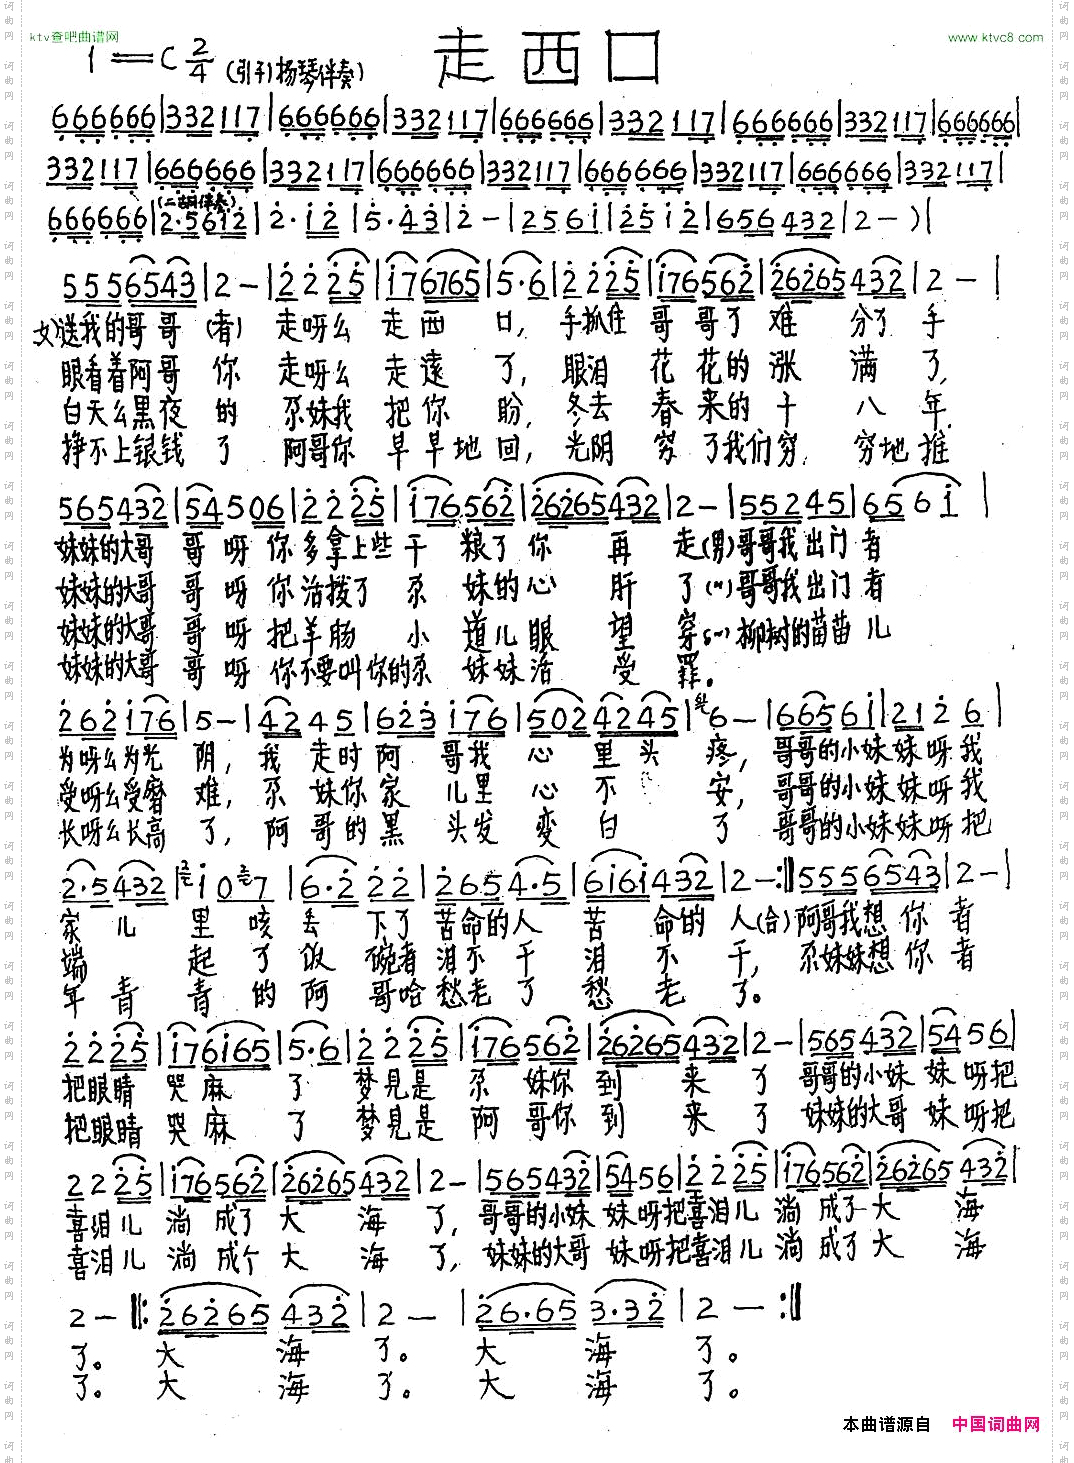 ktv查吧曲谱网
www.ktvc8.com
走西口
1=C 2/4 (引子)扬琴伴奏)
666666|332117|666666|332117|666666|332117|666666|332117|666666|
332117|666666|332117|666666|332117|666666|332117|666666|332117|
666666|(二胡伴奏)2·5612|2·12|5·43|2-|2561|2512|656432|2-)|
5556543|2-|2225|176765|5·6|2225|176562|26265432|2-|
女)送我的哥哥(者)走呀么走西口,手抓住哥哥了难分了手
眼看着阿哥你走呀么走远了,眼泪花花的涨满了,
白天么黑夜的尕妹我把你盼,冬去春来的十八年,
挣不上银钱了阿哥你早早地回,光阴穷了我们穷,穷地推
565432|54506|2225|176562|26265432|2-|55245|6561|
妹妹的大哥哥呀你多拿上些干粮了你再走(男)哥哥我出门者
妹妹的大哥哥呀你活拨了尕妹的心肝了(〃)哥哥我出门者
妹妹的大哥哥呀把羊肠小道儿眼望穿(〃)柳树的苗苗儿
妹妹的大哥哥呀你不要叫你的尕妹妹活受罪。
262176|5-|4245|623176|5024245|6-|66561|2126|
为呀么为光阴,我走时阿哥我心里头疼,哥哥的小妹妹呀我
受呀么受磨难,尕妹你家儿里心不安,哥哥的小妹妹呀我
长呀么长高了,阿哥的黑头发变白了哥哥的小妹妹呀把
2·5432|107|6·222|2654·5|6161432|2-:||5556543|2-|
家儿里咳丢下了苦命的人苦命的人(合)阿哥我想你者
端起了饭碗者泪不干泪不干,尕妹妹想你者
年青青的阿哥哈愁老了愁老了。
2225|176165|5·6|2225|176562|26265432|2-|565432|5456|
把眼睛哭麻了梦见是尕妹你到来了哥哥的小妹妹呀把
把眼睛哭麻了梦见是阿哥你到来了妹妹的大哥妹呀把
2225|176562|26265432|2-|565432|5456|2225|176562|26265432|
喜泪儿淌成了大海了,哥哥的小妹妹呀把喜泪儿淌成了大海
喜泪儿淌成个大海了,妹妹的大哥妹呀把喜泪儿淌成了大海
2-||:26265432|2-|26·653·32|2-:||
了。大海了。大海了。
了。大海了。大海了。
本曲谱源自 中国词曲网